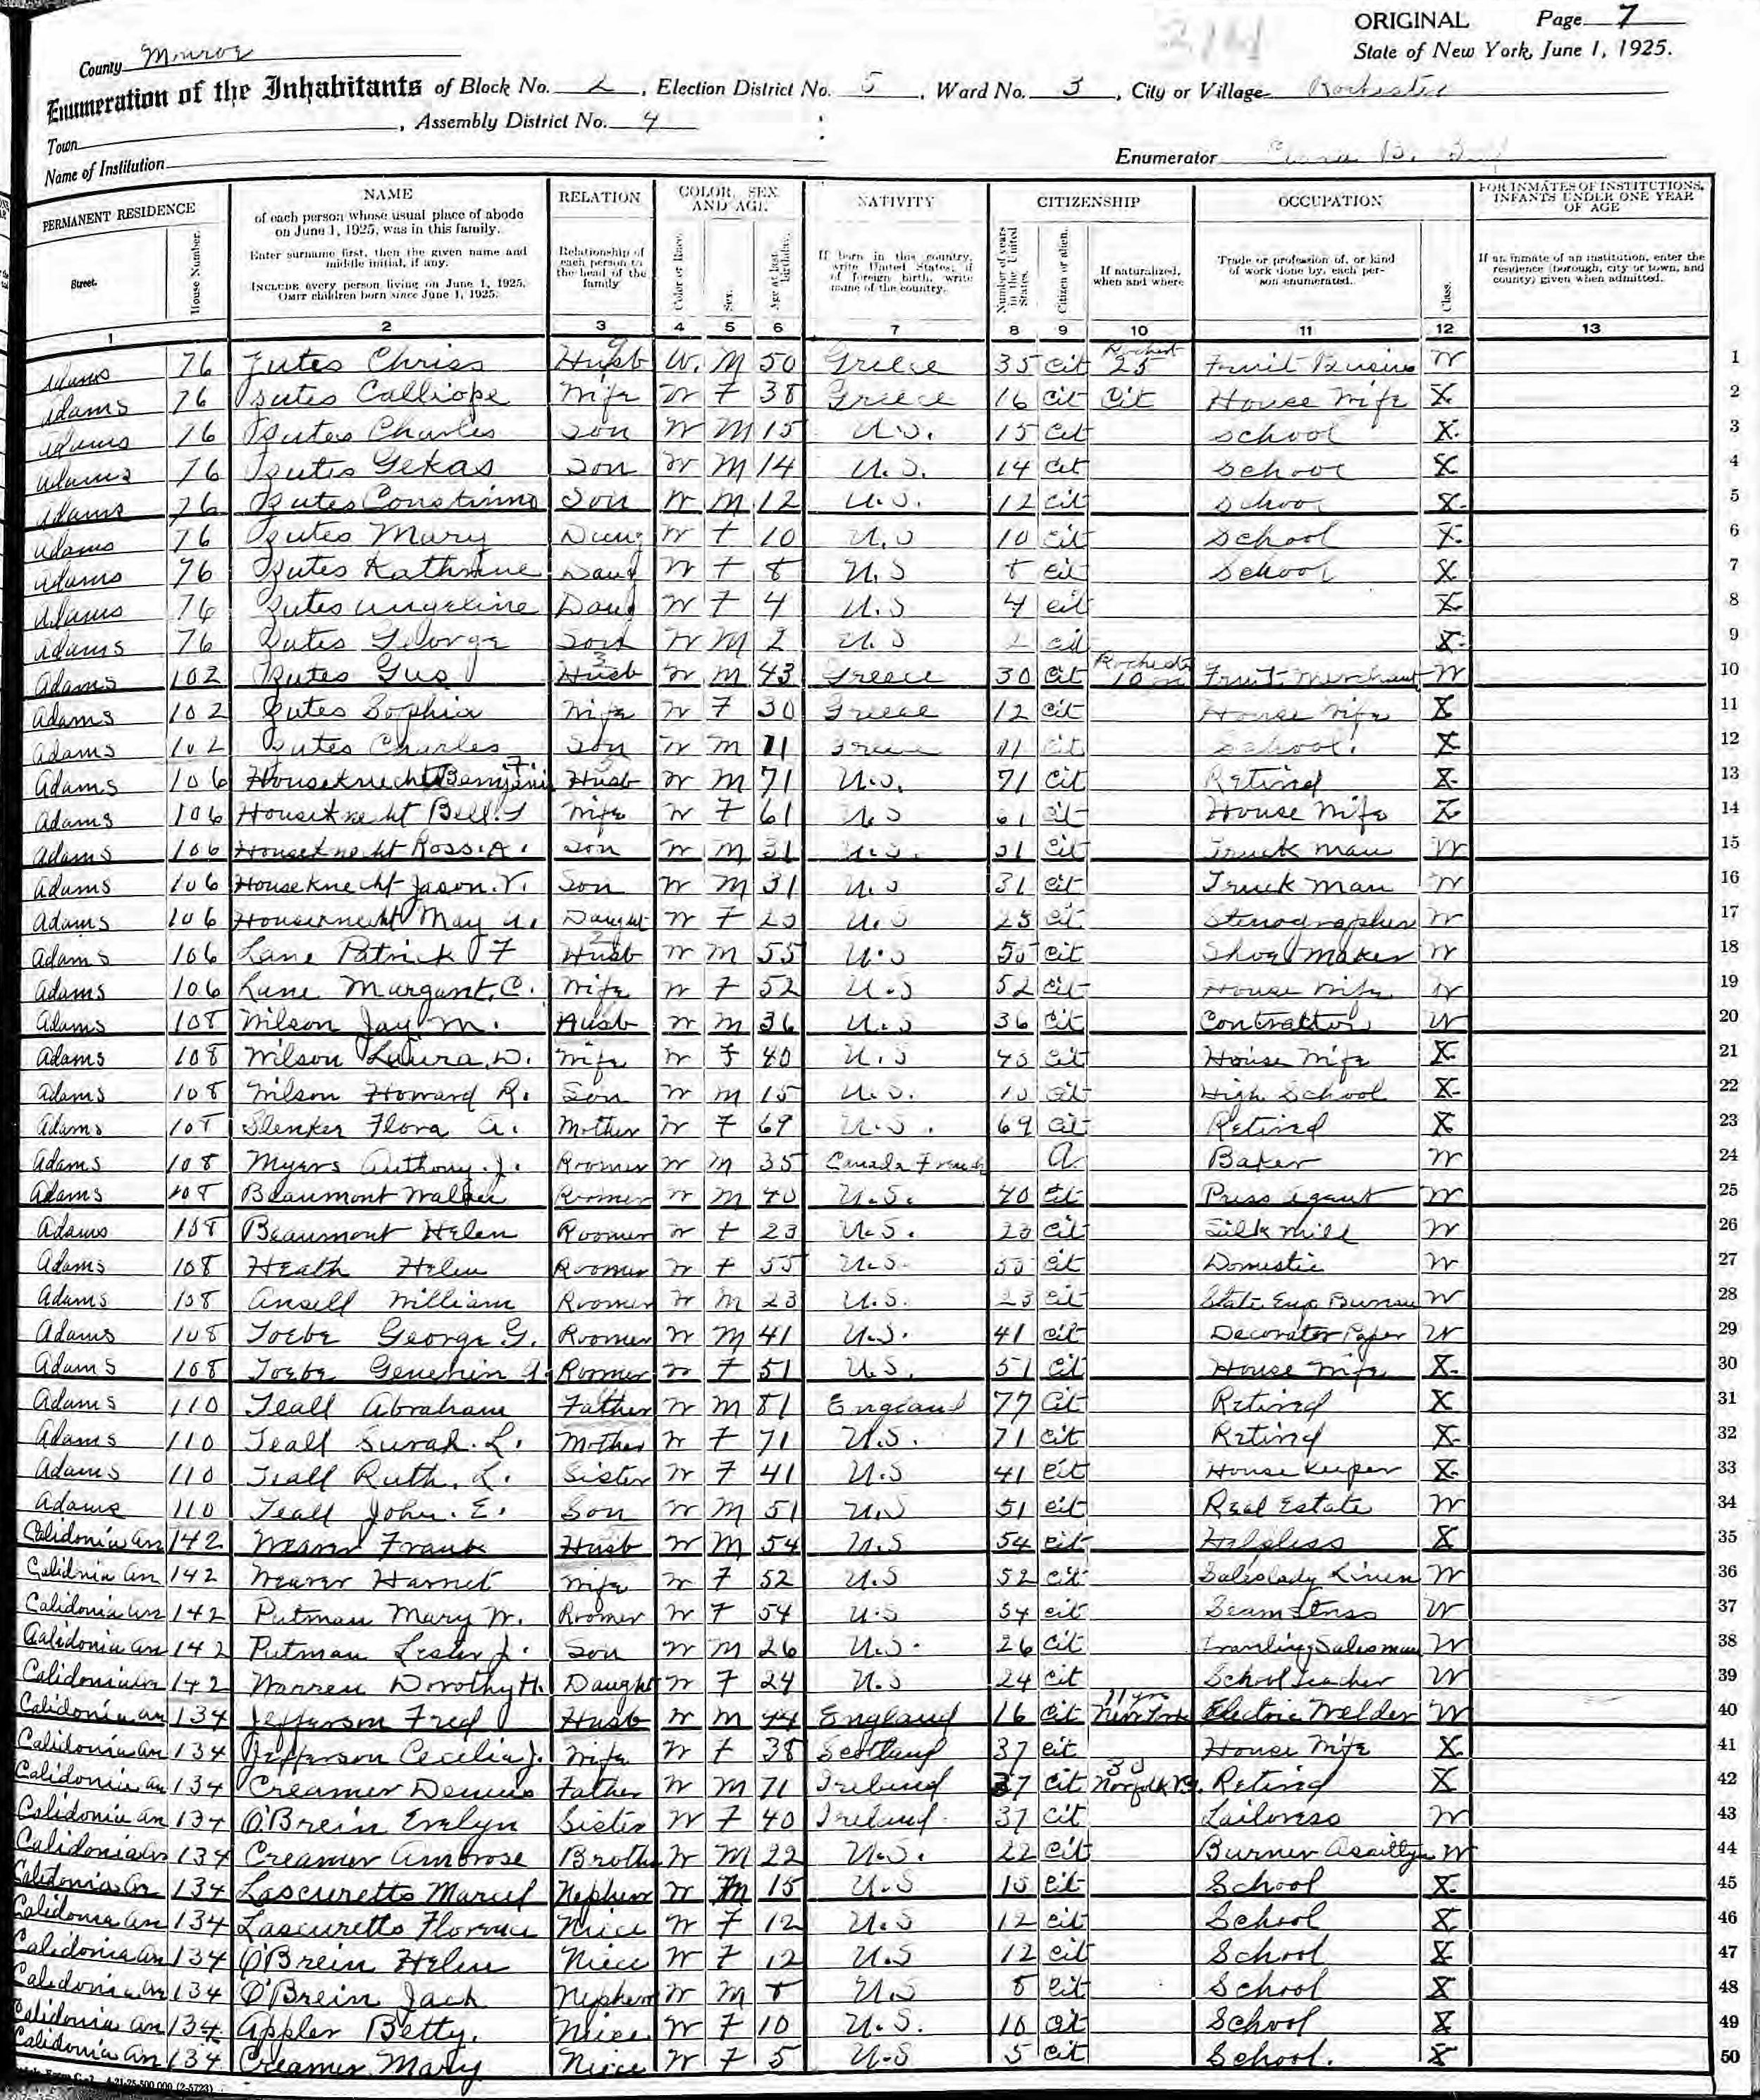 ORIGINAL Page 7
State of New York, June 1, 1925.
County Monroe
Enumeration of the Inhabitants of Block No. 2, Election District No. 5, Ward No. 3, City or Village Rochester
Town , Assembly District No. 4
Name of Institution Enumerator B.
PERMANENT RESIDENCE NAME RELATION COLOR, SEX AND AGE NATIVITY CITIZENSHIP OCCUPATION FOR INMATES OF INSTITUTIONS, INFANTS UNDER ONE YEAR OF AGE
Street. House Number. of each person whose usual place of abode on June 1, 1925, was in this family. Enter surname first, then the given name and middle initial, if any. INCLUDE every person living on June 1, 1925. OMIT children born since June 1, 1925. Relationship of each person to the head of the family Color or Race. Sex. Age at last birthday. If born in this country, write United States; if of foreign birth, write name of the country. Number of years in the United States. Citizen or alien. If naturalized, when and where Trade or profession of, or kind of work done by, each person enumerated. Class. If an inmate of an institution, enter the residence (borough, city or town, and county) given when admitted.
1 2 3 4 5 6 7 8 9 10 11 12 13
Adams 76 Zutes Chriss Husb W. M 50 Greece 35 Cit 25 Fruit W 1
Adams 76 Zutes Calliope Wife W F 38 Greece 16 Cit Cit House Wife X 2
Adams 76 Zutes Charles Son W M 15 U.S. 15 Cit School X 3
Adams 76 Zutes Gekas Son W M 14 U.S. 14 Cit School X 4
Adams 76 Zutes Son W M 12 U.S. 12 Cit School X 5
Adams 76 Zutes Mary Daug W F 10 U.S 10 Cit School X 6
Adams 76 Zutes Kathrine Daug W F 8 U.S 8 Cit School X 7
Adams 76 Zutes Angeline Daug W F 4 U.S 4 Cit X 8
Adams 76 Zutes George Son W M 2 U.S 2 Cit X 9
Adams 102 Zutes Gus Husb W M 43 Greece 30 Cit Rochester Fruit Merchant W 10
Adams 102 Zutes Sophia Wife W F 30 Greece 12 Cit House Wife X 11
Adams 102 Zutes Charles Son W M 11 Greece 11 Cit School. X 12
Adams 106 Houseknecht Benjamin F. Husb W M 71 U.S. 71 Cit Retired X 13
Adams 106 Houseknecht Bell. Wife W F 61 U.S 61 Cit House Wife X 14
Adams 106 Houseknecht Ross. A. Son W M 31 U.S. 31 Cit Truck Man W 15
Adams 106 Houseknecht Jason. V. Son W M 31 U.S 31 Cit Truck Man W 16
Adams 106 Houseknecht May A. Daught W F U.S Cit Stenographer W 17
Adams 106 Lane Patrick F Husb W M 55 U.S 55 Cit Shoe Maker W 18
Adams 106 Lane Margaret. C. Wife W F 52 U.S 52 Cit House Wife W 19
Adams 108 Wilson Jay M. Husb W M 36 U.S 36 Cit Contractor W 20
Adams 108 Wilson Laura. D. Wife W F 40 U.S 40 Cit House Wife X 21
Adams 108 Wilson Howard R. Son W M 15 U.S. 15 Cit High School X 22
Adams 108 Slenker Flora A. Mother W F 69 U.S. 69 Cit Retired X 23
Adams 108 Myers Anthony. J. Roomer W M 35 Canada French A. Baker W 24
Adams 108 Beaumont Walter Roomer W M 40 U.S. 40 Cit Press Agent W 25
Adams 108 Beaumont Helen Roomer W F 23 U.S. 23 Cit Silk Mill W 26
Adams 108 Heath Helen Roomer W F 55 U.S. 55 Cit Domestic W 27
Adams 108 Ansell William Roomer W M 23 U.S. 23 Cit State Emp Bureau W 28
Adams 108 Toebe George G. Roomer W M 41 U.S. 41 Cit Decorator Paper W 29
Adams 108 Toebe Roomer W F 51 U.S. 51 Cit House Wife X 30
Adams 110 Teall Abraham Father W M 81 England 77 Cit Retired X 31
Adams 110 Teall Surah. L. Mother W F 71 U.S. 71 Cit Retired X 32
Adams 110 Teall Ruth. L. Sister W F 41 U.S 41 Cit House Keeper X 33
Adams 110 Teall John. E. Son W M 51 U.S 51 Cit Real Estate W 34
Calidonia An 142 Weaver Frank Husb W M 54 U.S 54 Cit Helpless X 35
Calidnia An 142 Weaver Harriet Wife W F 52 U.S 52 Cit Saleslady Linen W 36
Calidonia An 142 Putman Mary W. Roomer W F 54 U.S 54 Cit Seamstress W 37
Calidonia An 142 Putman Lester J. Son W M 26 U.S. 26 Cit Traveling Salesman W 38
Calidonia An 142 Warren Dorothy H. Daught W F 24 U.S 24 Cit School Teacher W 39
Calidonia An 134 Jefferson Fred Husb W M 44 England 16 Cit 11 yrs New York Electric Welder W 40
Calidonia An 134 Jefferson Cecilia J. Wife W F 38 Scotland 37 Cit House Wife X 41
Calidonia An 134 Creamer Dennis Father W M 71 Ireland 37 Cit Norfolk Retired X 42
Calidonia An 134 O'Brein Evelyn Sister W F 40 Ireland 37 Cit Tailoress W 43
Calidonia An 134 Creamer Ambrose Broth W M 22 U.S. 22 Cit Burner W 44
Calidonia An 134 Lascuretto Nephew W M 15 U.S 15 Cit School X 45
Calidonia An 134 Lascuretto Florence Niece W F 12 U.S 12 Cit School X 46
Calidonia An 134 O'Brein Helen Niece W F 12 U.S 12 Cit School X 47
Calidonia An 134 O'Brein Jack Nephew W M 8 U.S 8 Cit School X 48
Calidonia An 134 Appler Betty. Niece W F 10 U.S. 10 Cit School X 49
Calidonia An 134 Creamer Mary Niece W F 5 U.S 5 Cit School. X 50
4-21-25-500,000 (2-5723)